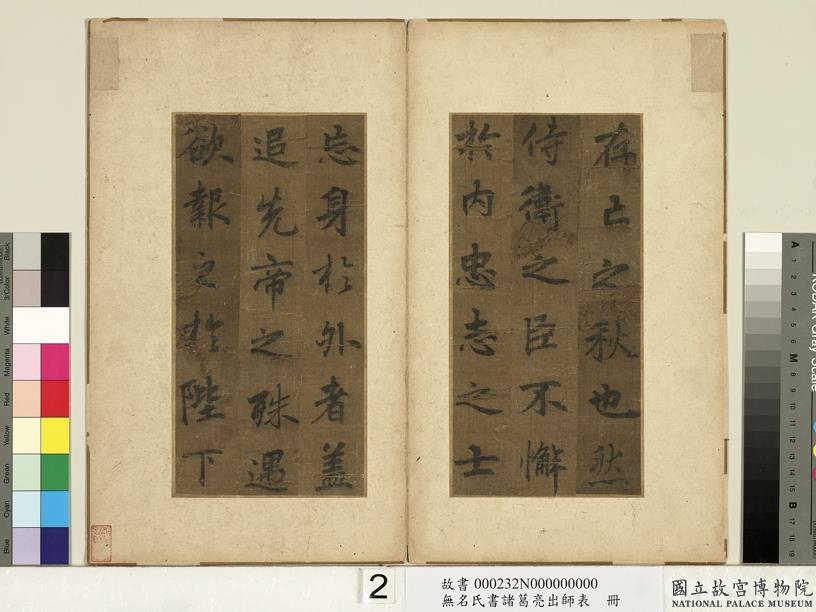 存亡之秋也然
侍衛之臣不懈
於内忠志之士
忘身於外者盖
追先帝之殊遇
欲報之於陛下
2
故書 000232N000000000
無名氏書諸葛亮出師表 冊
國立故宮博物院
NATIONAL PALACE MUSEUM
Black
3/Color
White
Magenta
Red
Yellow
Green
Cyan
Blue
A
1
2
3
4
5
6
M
8
9
10
11
12
13
14
15
B
17
18
19